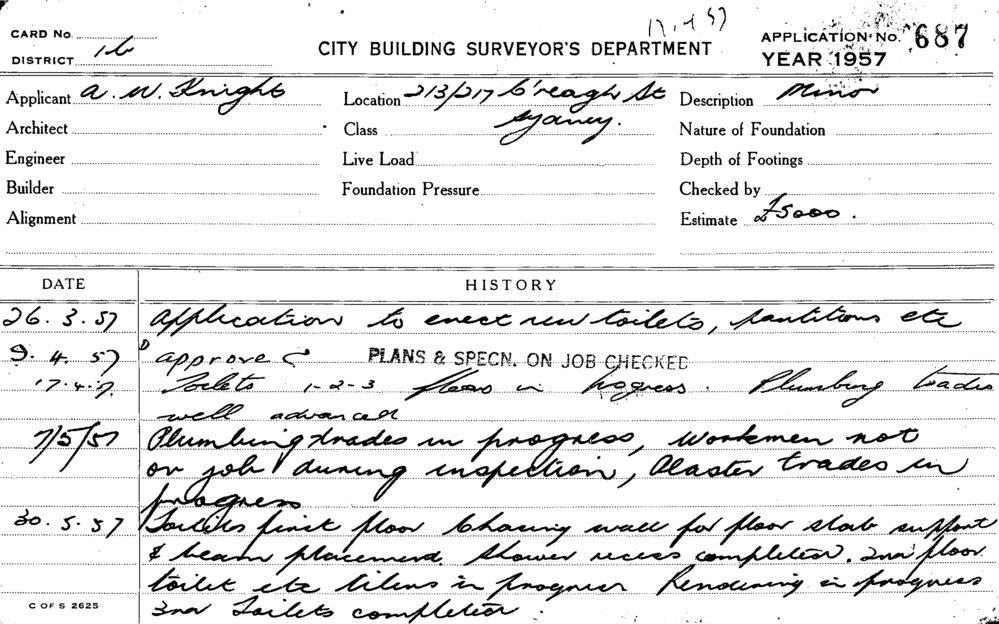 17.4.57
CARD No.
DISTRICT 1b
CITY BUILDING SURVEYOR'S DEPARTMENT
APPLICATION No. 687
YEAR 1957
Applicant A. W. Knight
Location 213/217 C'reagh St
Sydney.
Description Minor
Architect
Class
Nature of Foundation
Engineer
Live Load
Depth of Footings
Builder
Foundation Pressure
Checked by
Alignment
Estimate £5000.
DATE HISTORY
26.3.57 Application to erect new toilets, partitions etc
9.4.57 approve PLANS & SPECN. ON JOB CHECKED
17.4.57 Toilets 1-2-3 floors in progress. Plumbing trades
well advanced
7/5/57 Plumbing trades in progress, workmen not
on job during inspection, Plaster trades in
progress
30.5.57 Toilets first floor Chasing wall for floor slab support
& beam placement. Shower recess completed. 2nd floor
toilet etc tilers in progress Rendering in progress
3rd Toilets completed.
C OF S 2625